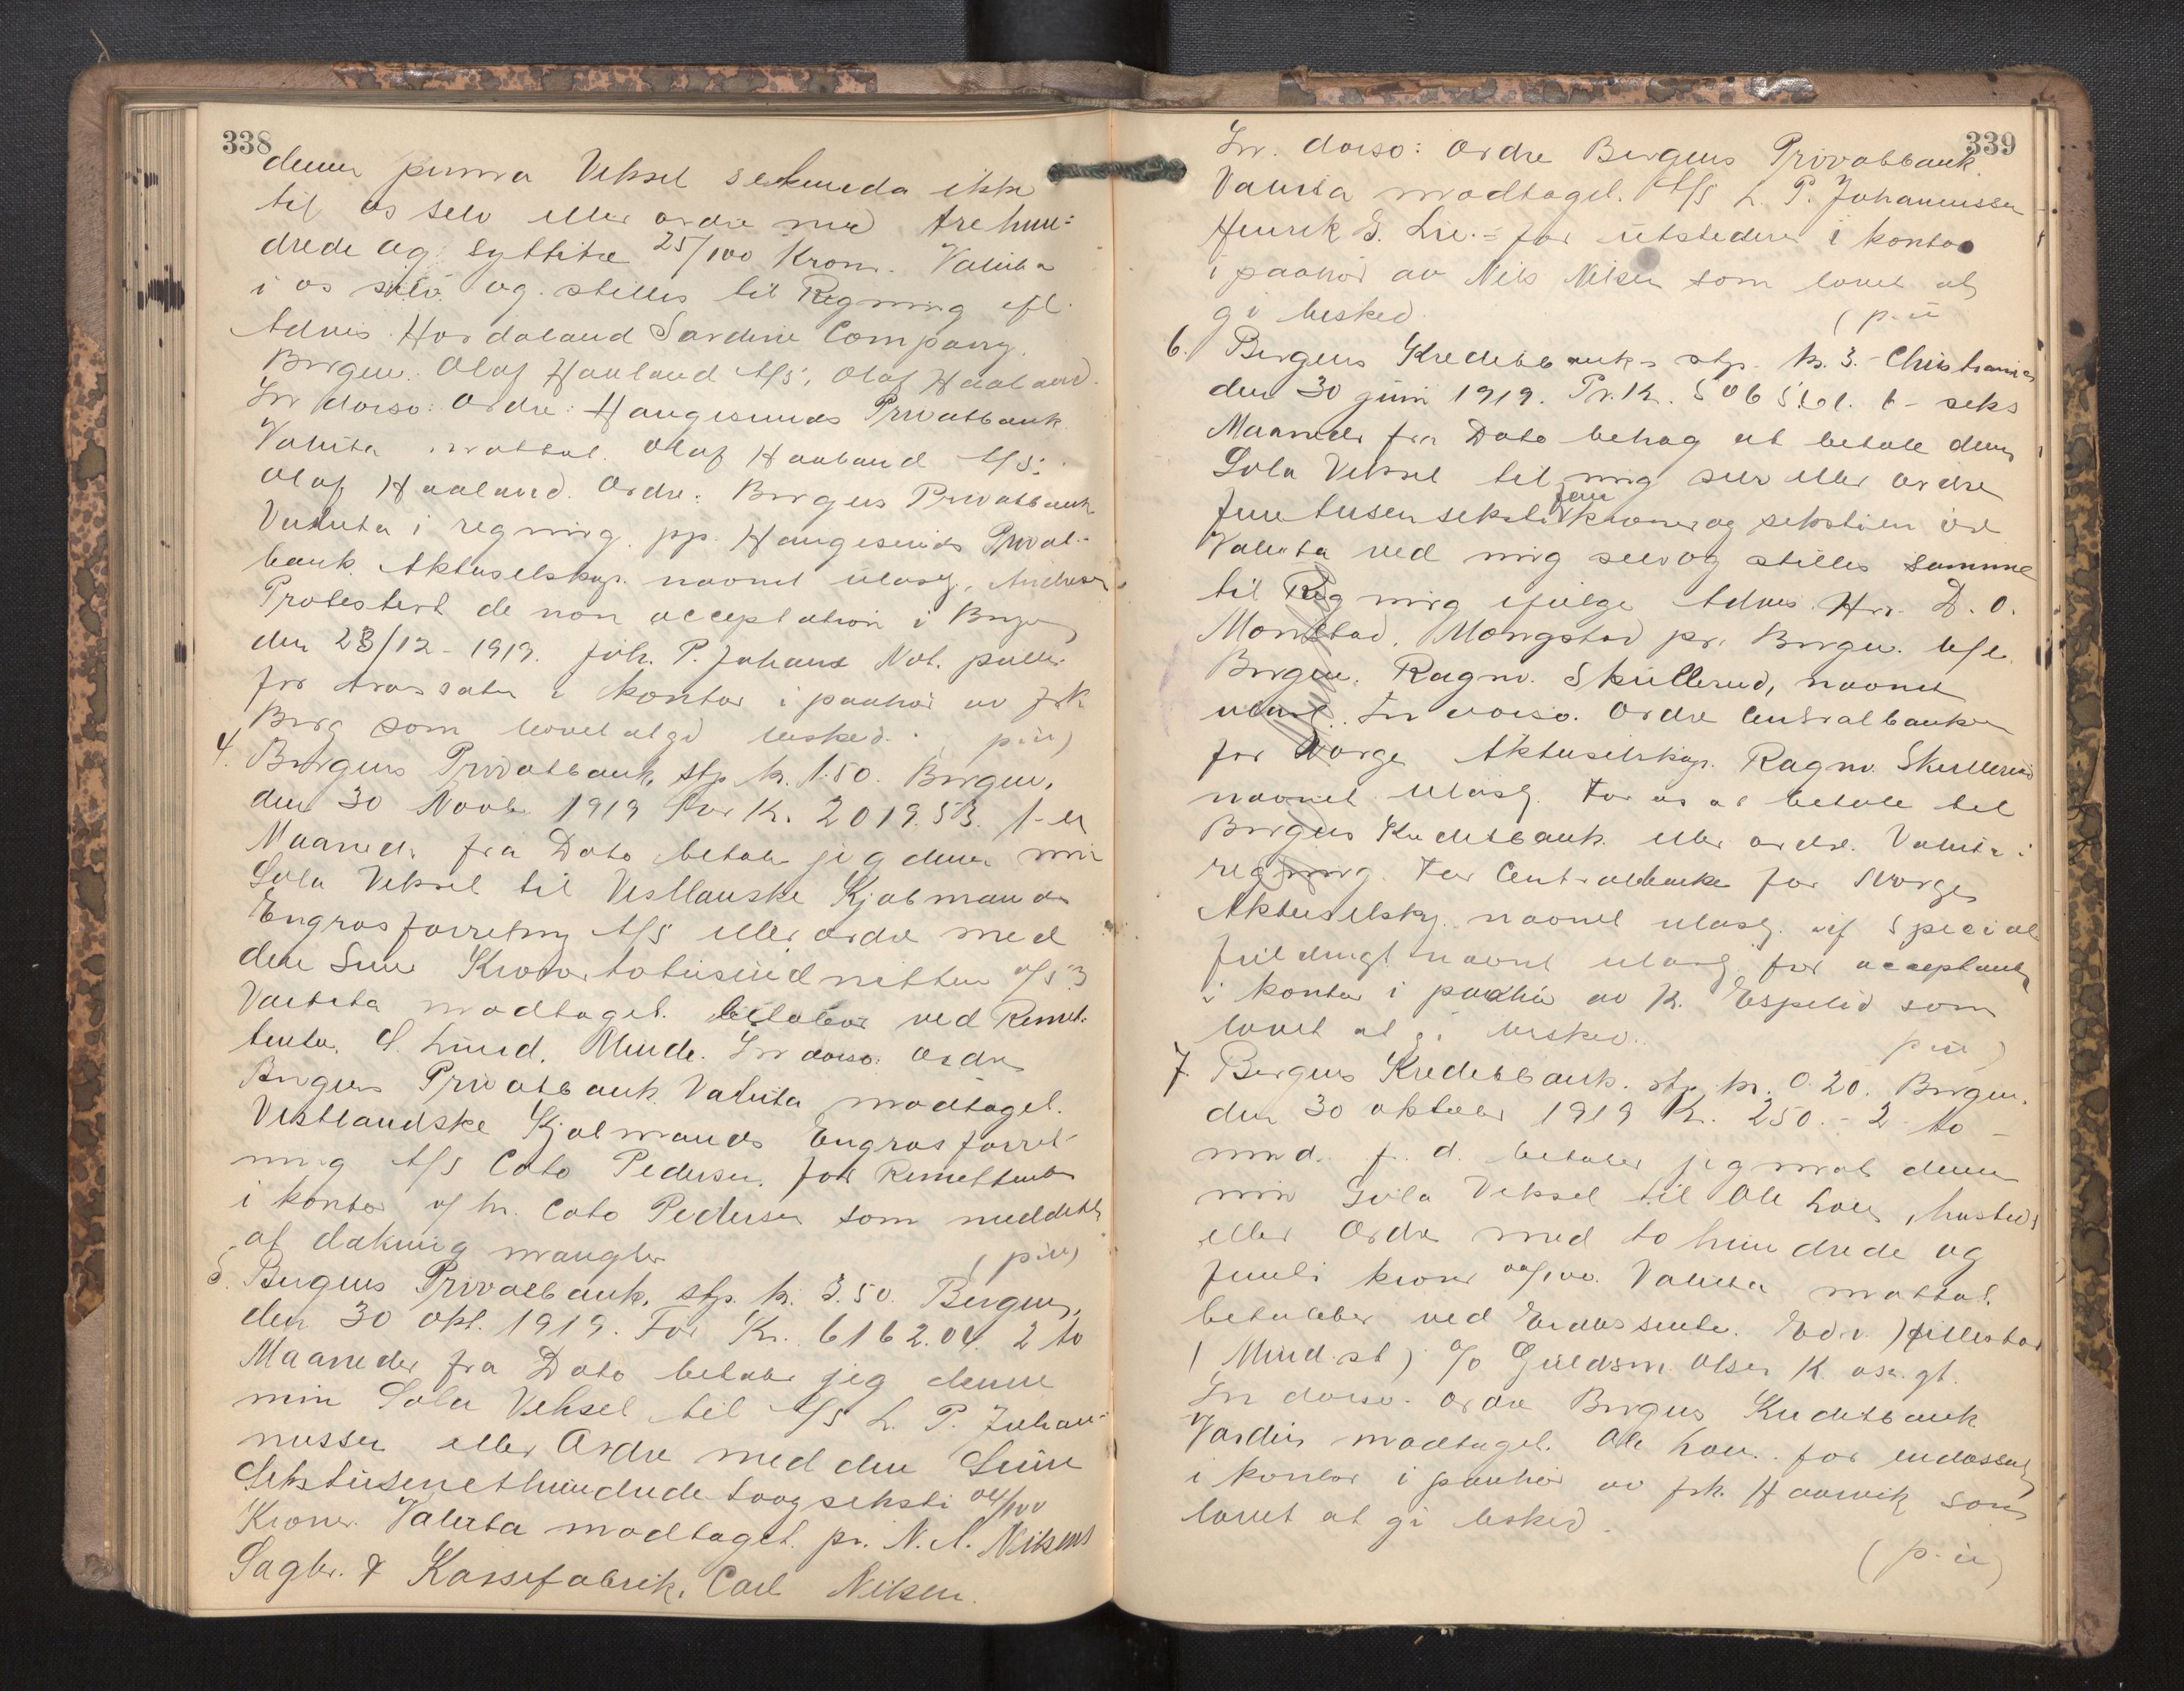 338
denne prima Veksel sekunda ikke
til os selv eller ordre med trehun-
drede og syttitre 25/100 Kroner. Valuta
i os selv og stilles til Regning efl.
Advis. Hordaland Sardine Company.
Bergen. Olaf Haaland A/S. Olaf Haaland.
In dorso: Ordre: Haugesunds Privatbank
Valuta mottat. Olaf Haaland A/S.
Olaf Haaland. Ordre: Bergens Privatbank
Valuta i regning. pp. Haugesunds Privat-
bank Aktieselskap. navnet ulæsg. Andersen
Protestert de non acceptation i Bergen
den 23/12-1919. Joh. P. Johans Not. publ.
for trassaten i kontor i paahør av frk
Berg som lovet at gi besked. p.u)
4. Bergens Privatbank, stp. kr. 1.50. Bergen,
den 30 Novb. 1919 For K. 2019.53. 1-en
Maaned fra Dato betaler jeg denne min
Sola Veksel til Vestlanske Kjøbmands
Engrosforretning A/S eller ordre med
den Sum Kroner totusindnitten o/53
Valuta modtaget. betalbar ved Remit-
tenten. S. Lund. Minde. In dorso. Ordre
Bergens Privatbank Valuta modtaget.
Vestlandske Kjøbmands Engrosforret-
ning A/S Cato Pedersen. for Remittenten
i kontor af hr. Cato Pedersen som meddelte
at dækning mangler (p.u)
5. Bergens Privatbank, stp. kr. 3.50. Bergen,
den 30 okt. 1919. For Kr. 6162.04. 2 to
Maaneder fra Dato betaler jeg denne
min Sola Veksel til A/S L. P. Johan-
nessen eller Ordre med den Sum
Sekstusenethundredetoogseksti 04/100
Kroner. Valuta modtaget. pr. N. N. Nilsens
Sagbr. & Kassefabrik. Carl Nilsen.
339
In. dorso: Ordre Bergens Privatbank.
Valuta modtaget. A/S L. P. Johannessen
Henrik S. Lie. = for utstederen i kontor
i paahør av Nils Nilsen som lovet at
gi besked. (p.u
6. Bergens Kreditbank stp. kr. 3.- Christiania
den 30 juni 1919. Pr. K. 5065.61. 6- seks
Maaneder fra Dato behag at betale denne
Sola Veksel til mig selv eller ordre
fem
Femtusenseksti kroner og sekstien øre
Valuta ved mig selv og stilles samme
til Regning ifølge Advis. Hr. D. O.
Monstad, Mongstad pr. Bergen.
Bergen. Ragnv. Skullerud, navnet
ulæsl. In dorso. Ordre Centralbanken
for Norge Aktieselskap. Ragnv. Skullerud
navnet ulæsg. For os at betale til
Bergens Kreditbank eller ordre. Valuta i
regning. For Centralbanken for Norge
Aktieselskg. navnet ulæsg. if special
fuldmagt navnet ulæsg for acceptanten
i kontor i paahør av K. Espelid som
lovet at gi besked. p.u)
7 Bergens Kreditbank. stp. kr. 0.20. Bergen.
den 30 oktober 1919 K. 250.- 2 to -
mnd. f. d. betaler jeg mot denne
min Sola Veksel til Ole Loe,
eller Ordre med to hundrede og
femti kroner oo/100. Valuta mottat.
betalbar ved Endossente. Edv.
In dorso. Ordre Bergens Kreditbank
Værdien modtaget. Ole Loe. for endossenten
i kontor i paahør av frk. Haarvik som
lovet at gi besked.
(p.u)